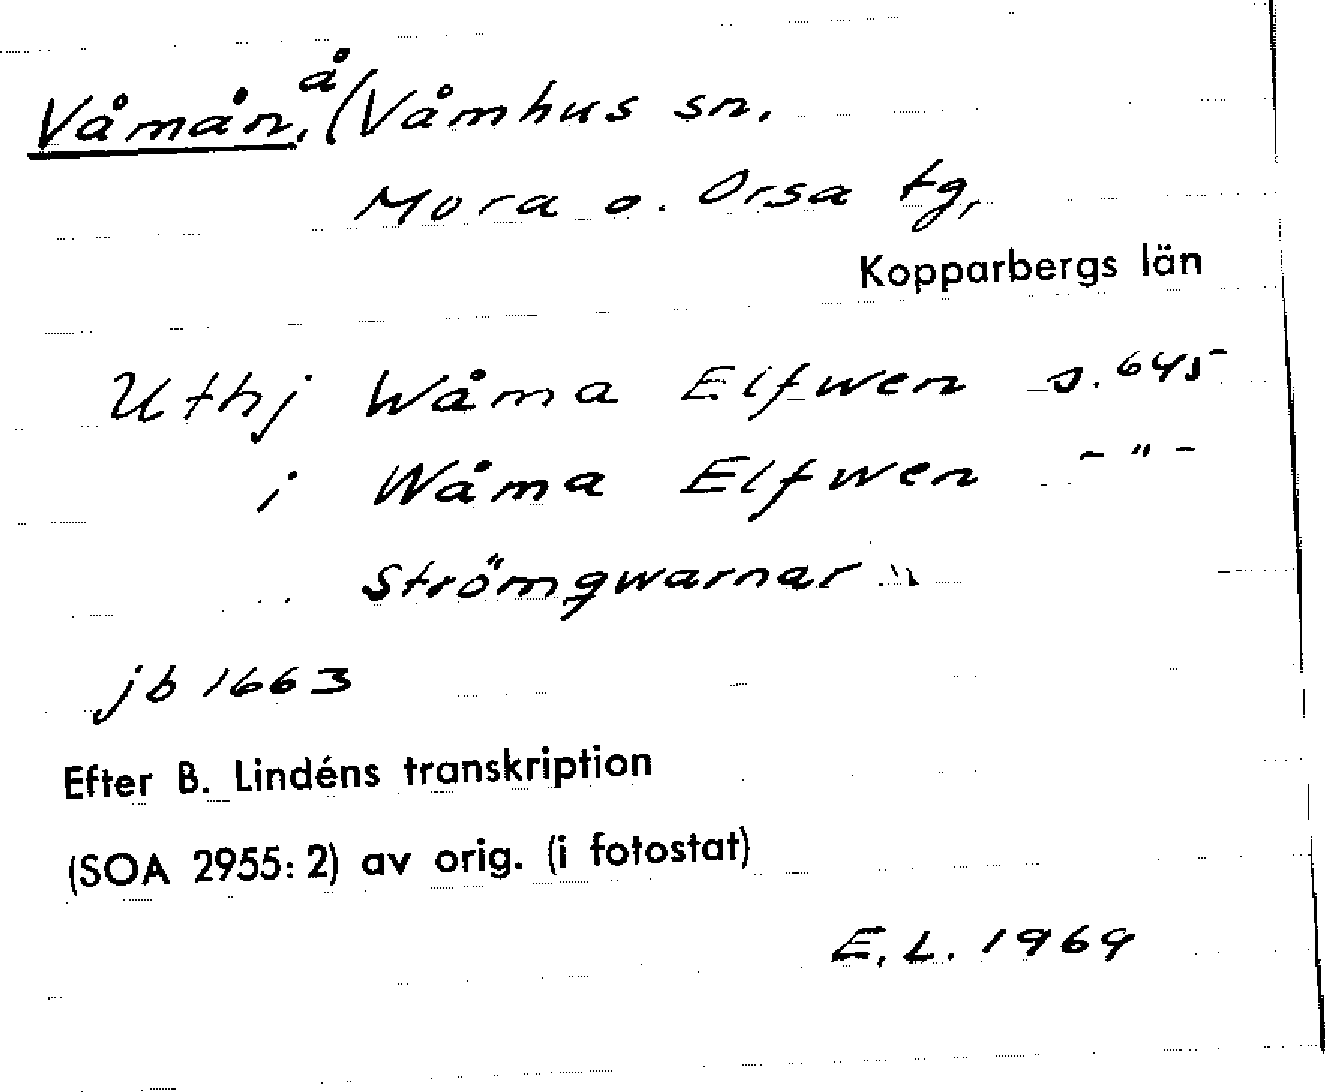 Våmån, å (Våmhus sn,
Mora o. Orsa tg,
Kopparbergs län
Uthj Wåma Elfwen s. 645
i Wåma Elfwen - " -
Strömqwarnar "
jb 1663
Efter B. Lindéns transkription
(SOA 2955: 2) av orig. (i fotostat)
E. L. 1969